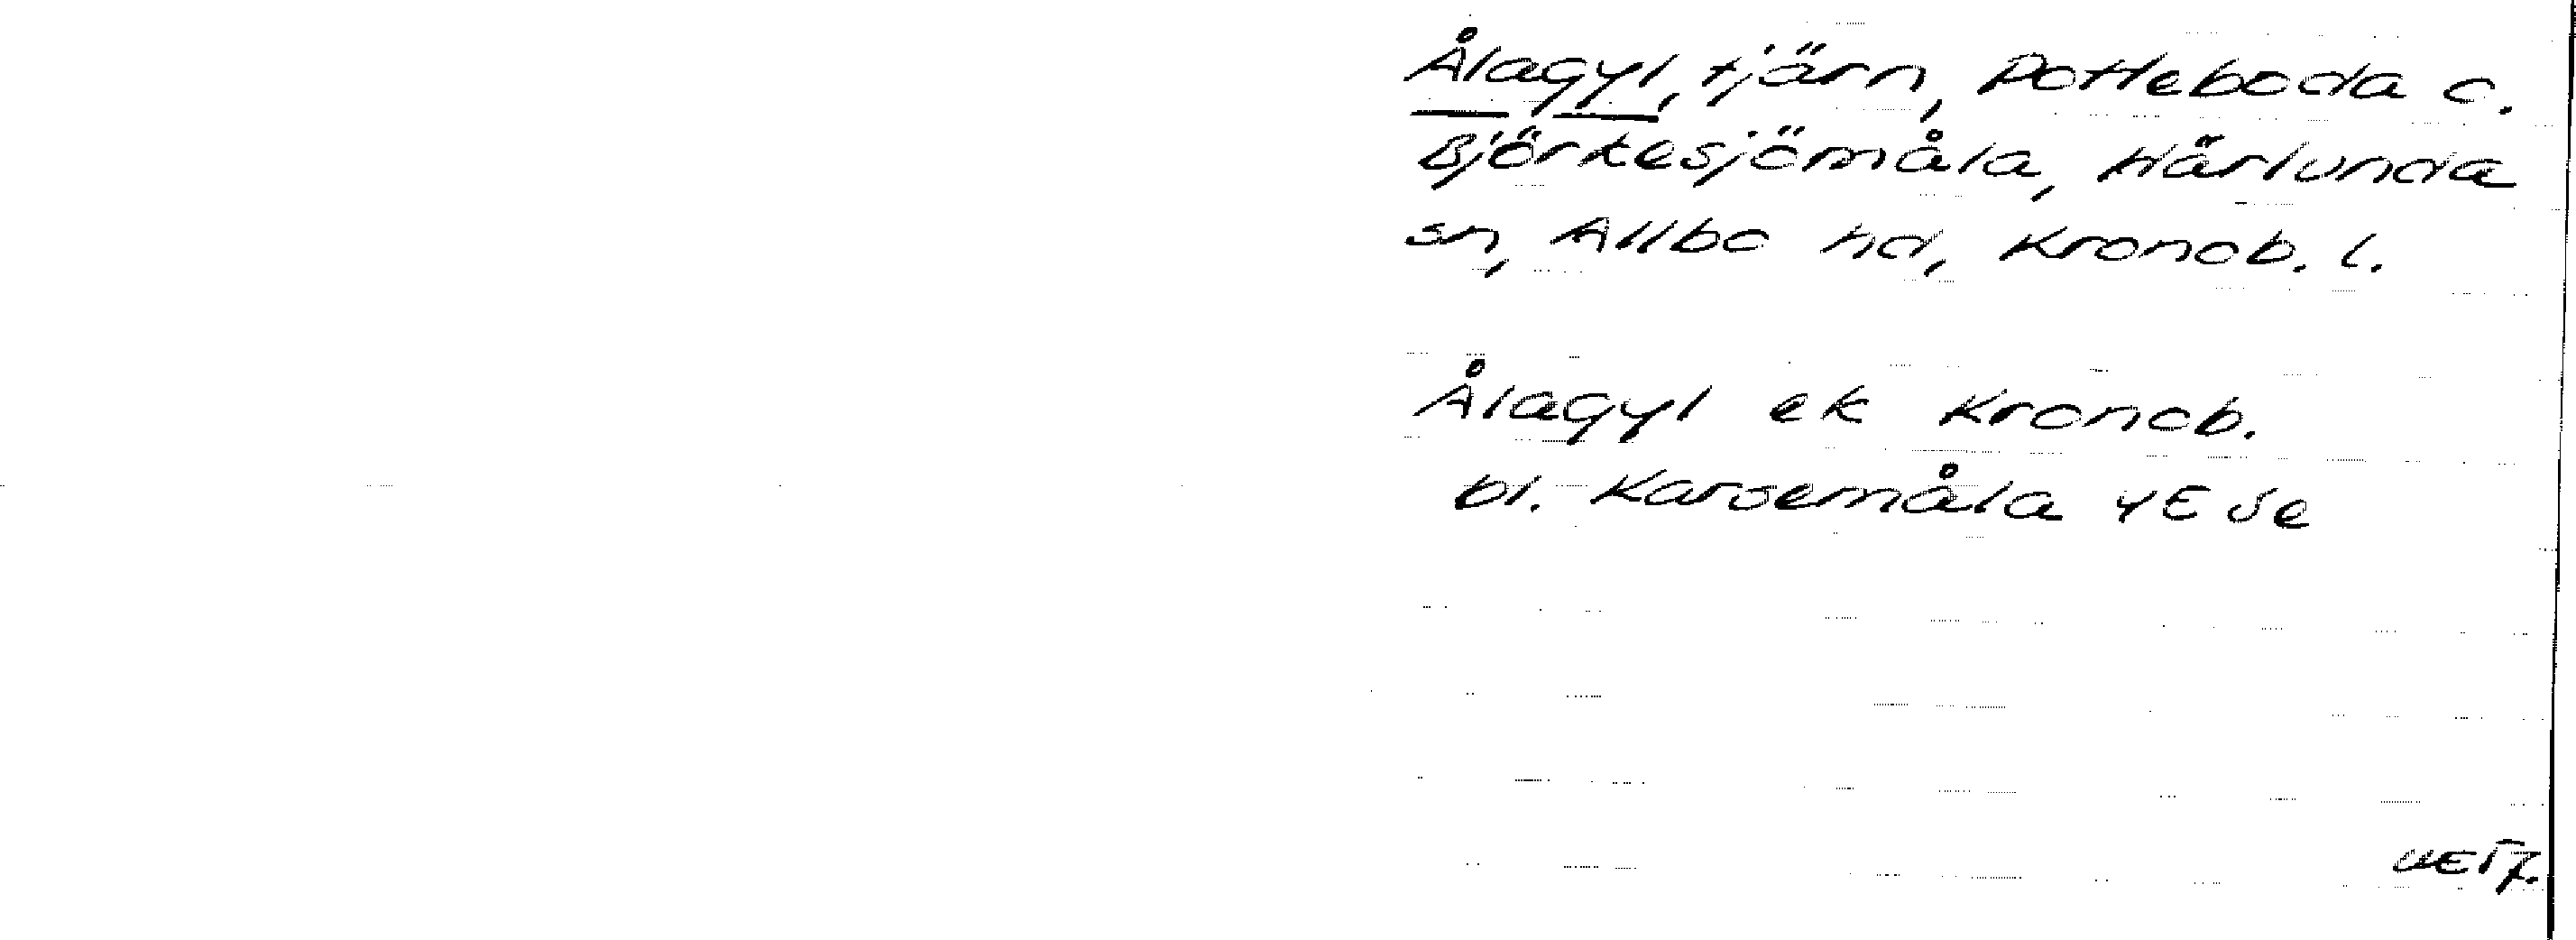 Ålagyl, tjärn, Potteboda o.
Björkesjömåla, Härlunda
sn, Allbo hd, Kronob. l.
Ålagyl ek Kronob.
bl. Karsemåla 4E Se